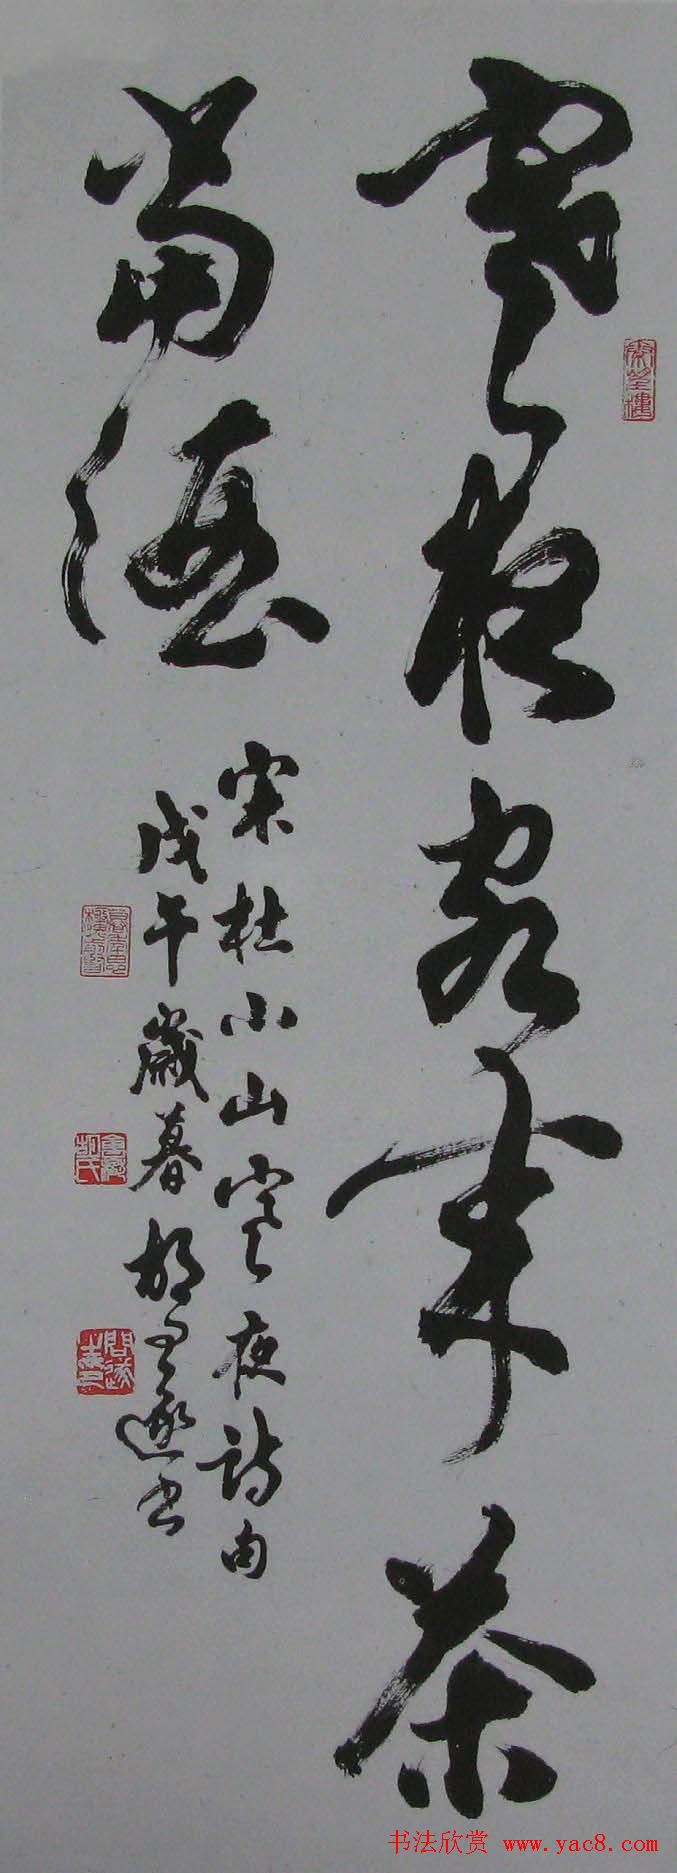 寒夜客来茶
當酒
宋杜小山寒夜詩句
戊午歲暮胡问遂书
书法欣赏 www.yac8.com